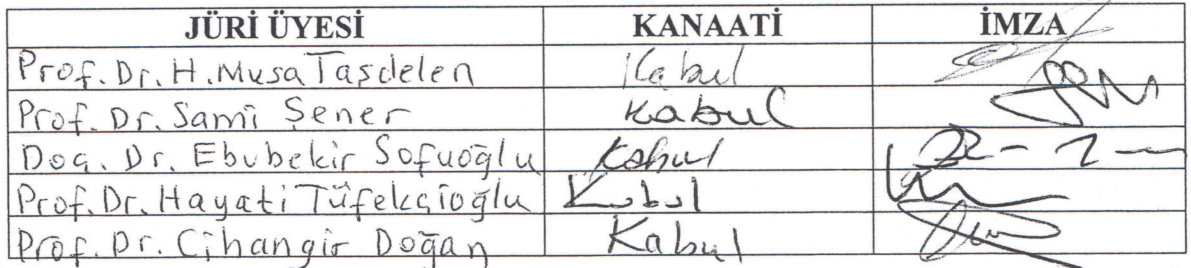 JÜRİ ÜYESİ KANAATİ İMZA
Prof. Dr. H. Musa Taşdelen Kabul
Prof. Dr. Sami Şener Kabul
Doç. Dr. Ebubekir Sofuoğlu Kabul
Prof. Dr. Hayati Tüfekçioğlu Kabul
Prof. Dr. Cihangir Doğan Kabul